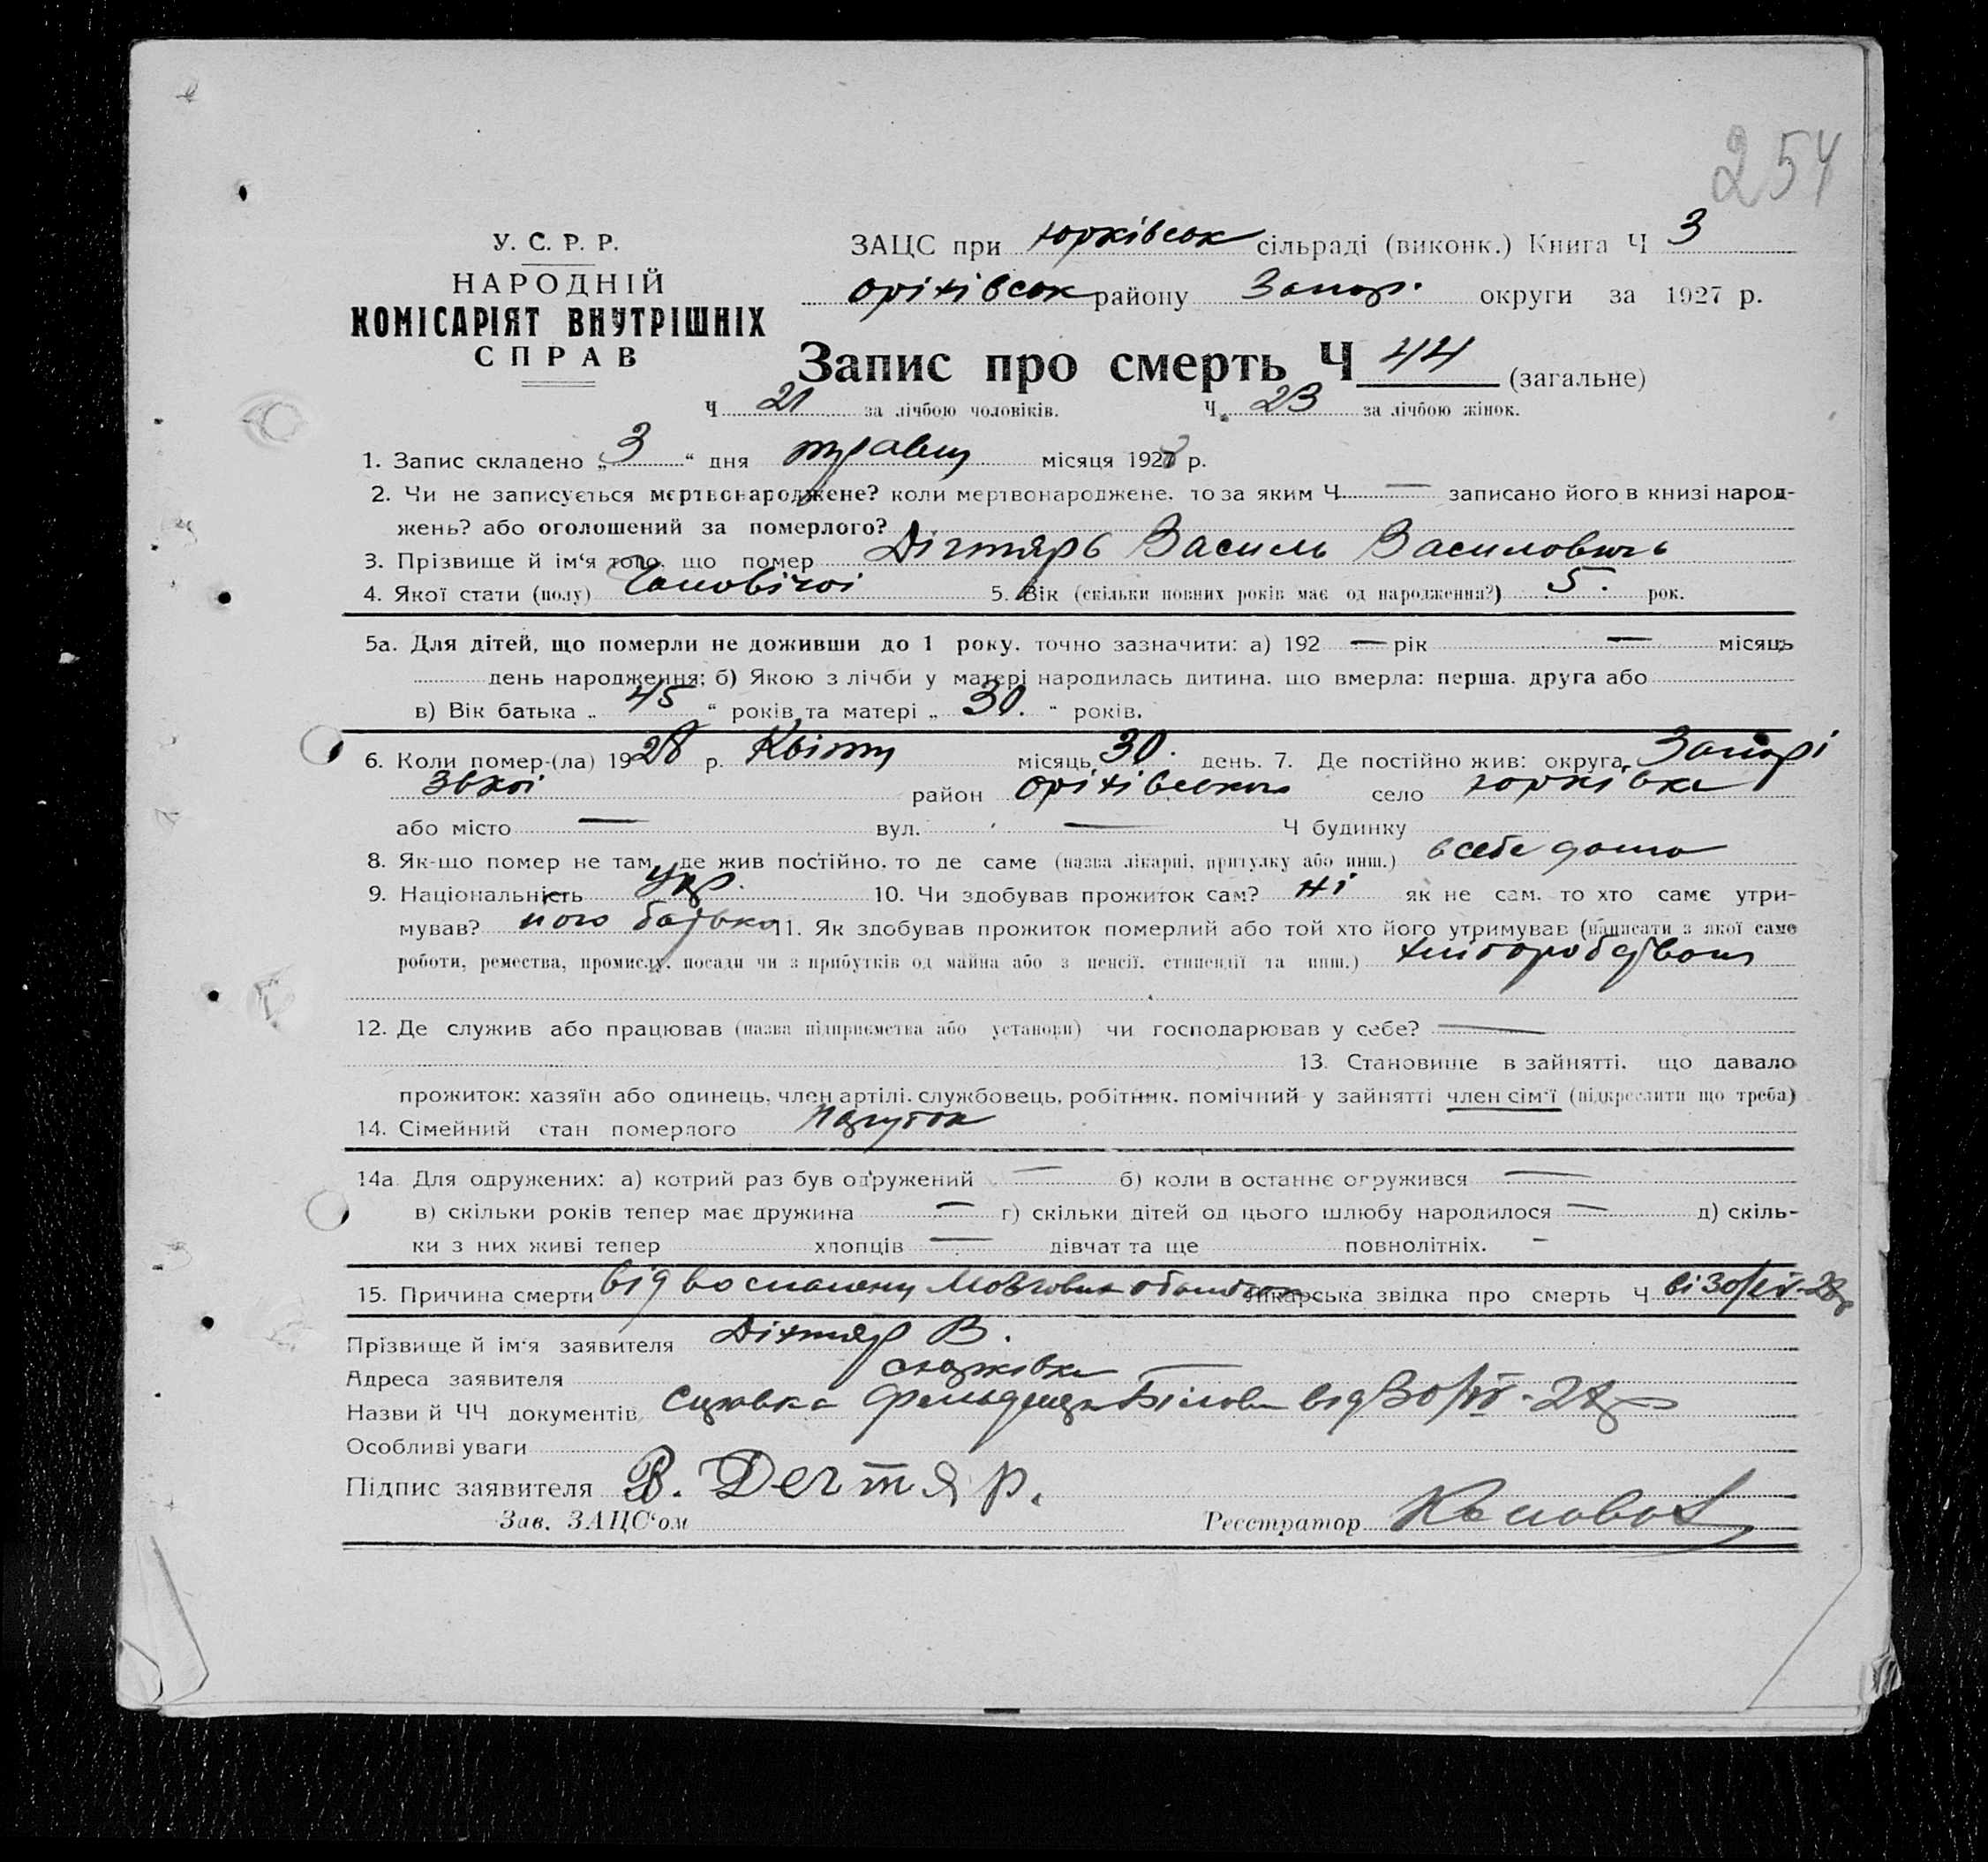 254
У. С. Р. Р.
НАРОДНІЙ
КОМІСАРІЯТ ВНУТРІШНІХ
СПРАВ
ЗАЦС при Юрківськ сільраді (виконк.) Книга Ч 3
Оріхівськ району Запор. округи за 1927 р.
Запис про смерть Ч 44 (загальне)
Ч 21 за лічбою чоловіків. Ч. 23 за лічбою жінок.
1. Запис складено „ 3 “ дня травня місяця 1928 р.
2. Чи не записується мертвонароджене? коли мертвонароджене, то за яким Ч — записано його в книзі народ-
жень? або оголошений за померлого?
3. Прізвище й ім‘я того, що помер Дігтярь Василь Василовичь
4. Якої стати (полу) Чоловічої 5. Вік (скільки повних років має од народження?) 5. рок.
5а. Для дітей, що померли не доживши до 1 року, точно зазначити: а) 192 — рік — місяць
день народження; б) Якою з лічби у матері народилась дитина, що вмерла: перша, друга або
в) Вік батька „ 45 “ років та матері „ 30. “ років.
6. Коли помер-(ла) 1928 р. Квітня місяць 30. день. 7. Де постійно жив: округа Запорі
зької район Оріхівського село Юрківка
або місто — вул. — Ч будинку
8. Як-що помер не там, де жив постійно, то де саме (назва лікарні, притулку або инш.) в себе дома
9. Національність Укр. 10. Чи здобував прожиток сам? Ні як не сам, то хто саме утри-
мував? його батько 11. Як здобував прожиток померлий або той хто його утримував (написати з якої саме
роботи, ремества, промислу, посади чи з прибутків од майна або з пенсії, стипендії та инш.) хліборобством
12. Де служив або працював (назва підприємства або установи) чи господарював у себе? —
13. Становище в зайнятті, що давало
прожиток: хазяїн або одинець, член артілі, службовець, робітник, помічний у зайнятті член сім‘ї (підкреслити що треба)
14. Сімейний стан померлого парубок
14а. Для одружених: а) котрий раз був одружений — б) коли в останнє одружився —
в) скільки років тепер має дружина — г) скільки дітей од цього шлюбу народилося — д) скіль-
ки з них живі тепер хлопців — дівчат та ще повнолітніх. -
15. Причина смерти від воспаленя Мозгових оболочок Лікарська звідка про смерть Ч ві 30/IV-28р
Прізвище й ім‘я заявителя Дігтяр В.
Адреса заявителя с Юрківка —
Назви й ЧЧ документів Справка Фельдшера від 30/IV-28р
Особливі уваги
Підпис заявителя В. Дегтяр.
Зав. ЗАЦС‘ом Реєстратор